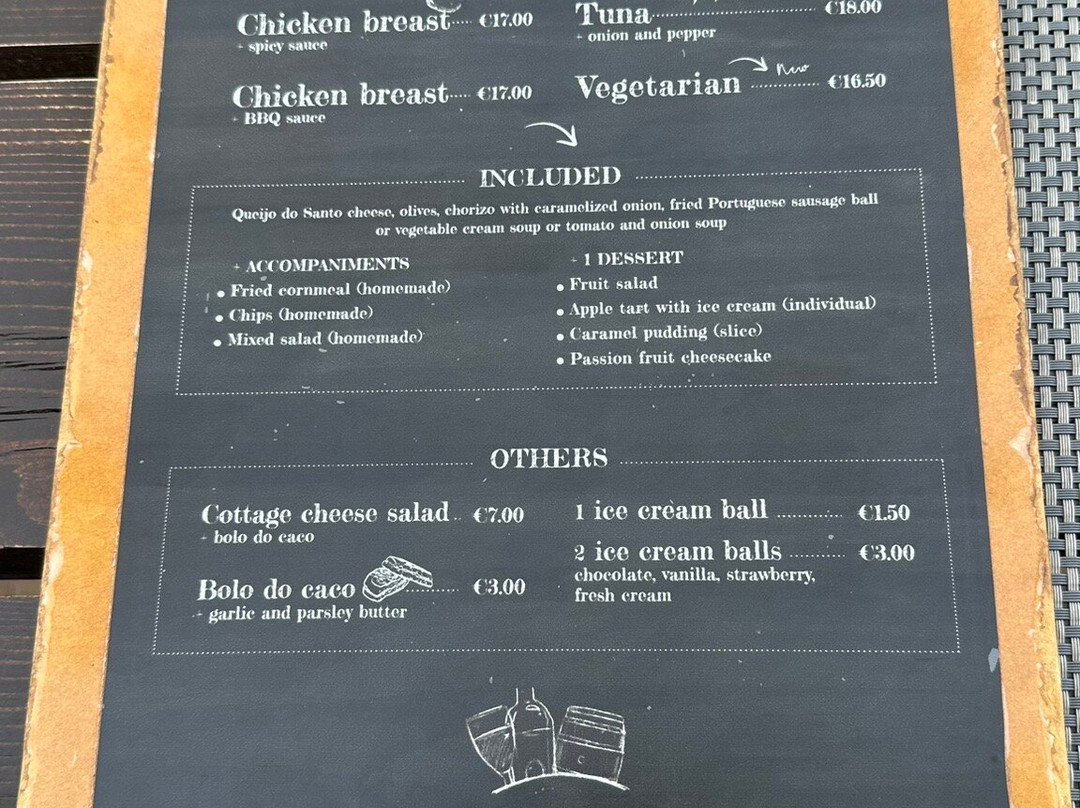 Chicken breast ..... €17.00
+ spicy sauce
Chicken breast ..... €17.00
+ BBQ sauce
Tuna ..... €18.00
+ onion and pepper
Vegetarian ..... €16.50
New
INCLUDED
Queijo do Santo cheese, olives, chorizo with caramelized onion, fried Portuguese sausage ball
or vegetable cream soup or tomato and onion soup
+ ACCOMPANIMENTS
• Fried cornmeal (homemade)
• Chips (homemade)
• Mixed salad (homemade)
+ 1 DESSERT
• Fruit salad
• Apple tart with ice cream (individual)
• Caramel pudding (slice)
• Passion fruit cheesecake
OTHERS
Cottage cheese salad .. €7.00
+ bolo do caco
Bolo do caco ..... €3.00
+ garlic and parsley butter
1 ice cream ball ..... €1.50
2 ice cream balls ..... €3.00
chocolate, vanilla, strawberry,
fresh cream